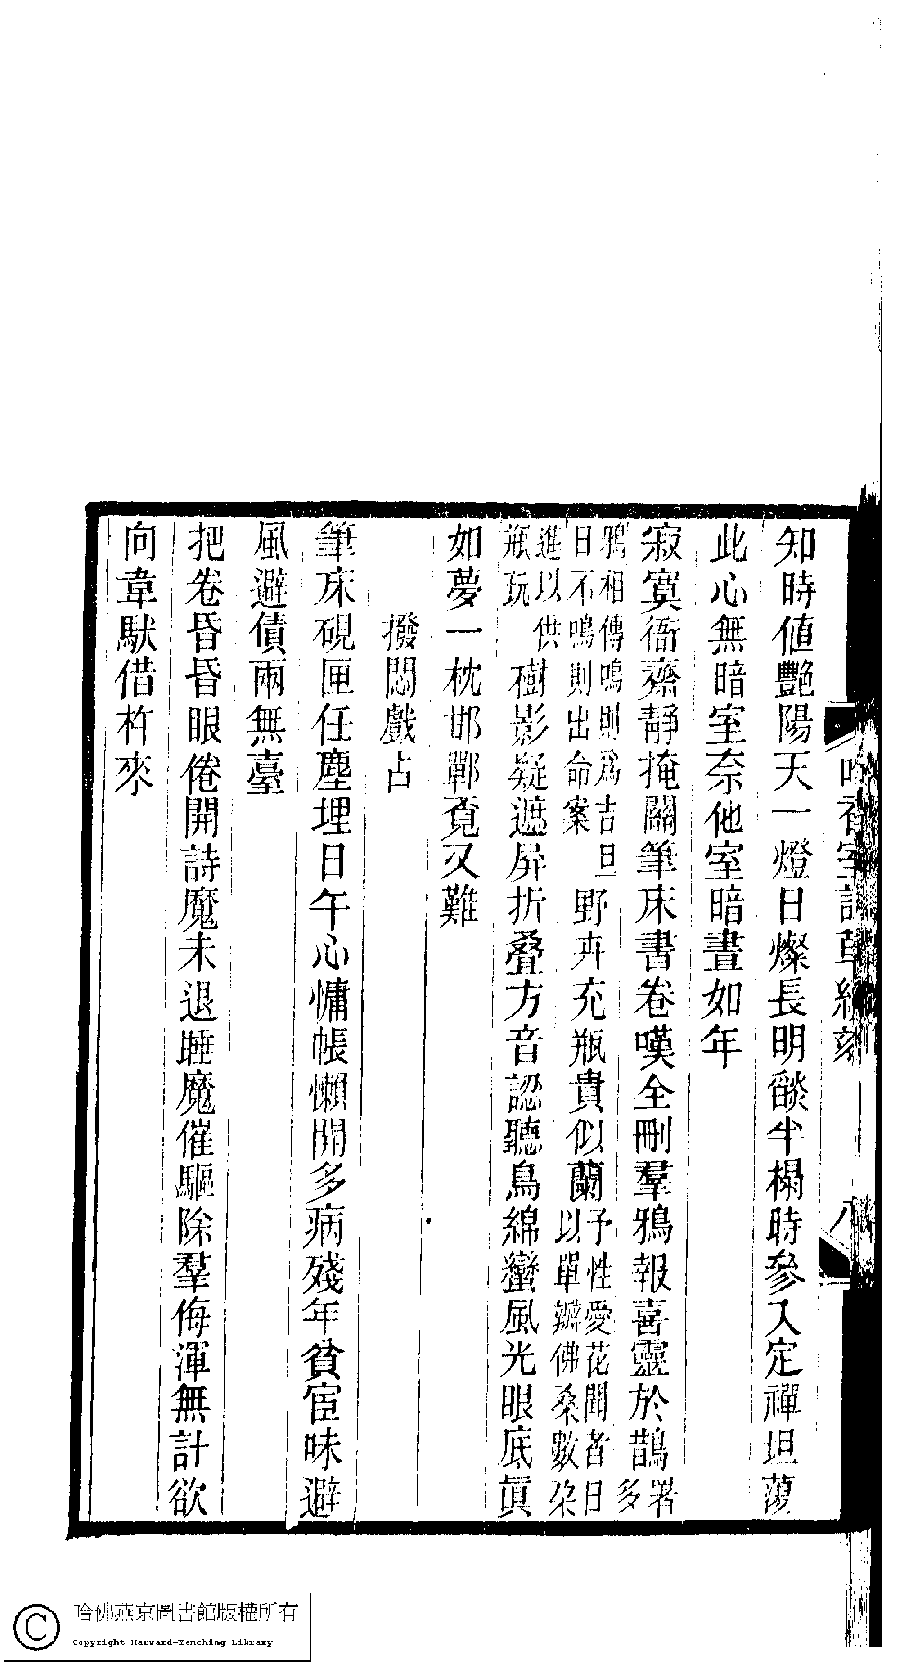 吟香室詩草續刻 八
知時値艷陽天一燈日燦長明燄半榻時參入定禪坦蕩
此心無暗室奈他室暗晝如年
寂寞衙齋靜掩關筆床書卷嘆全刪羣鴉報喜靈於鵲署多
鴉相傳鳴則爲吉旦日不鳴則出命案野卉充瓶貴似蘭予性愛花聞者日以單瓣佛桑數朶
進以供瓶玩樹影疑遮屏折叠方音認聽鳥綿蠻風光眼底眞
如夢一枕邯鄲覓又難
撥悶戲占
筆床硯匣任塵埋日午心慵帳懶開多病殘年貧宦味避
風避債兩無臺
把卷昏昏眼倦開詩魔未退睡魔催驅除羣侮渾無計欲
向韋馱借杵來
哈佛燕京圖書館版權所有
Copyright Harvard-Yenching Library